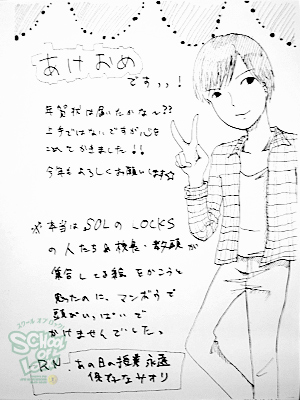 あけおめ
ですっっ!
年賀状は届いたかな~??
上手ではないですが心を
こめてかきました!!
今年もよろしくお願いします☆
※本当はSOLのLOCKS
の人たちや校長・教頭が
集合してる絵をかこうと
思ったのに、マンボウで
頭がいっぱいで
かけませんでした。
スクールオブロック
SCHOOL
OF LOCK!
RN あの日の授業永遠
保存なサオリ